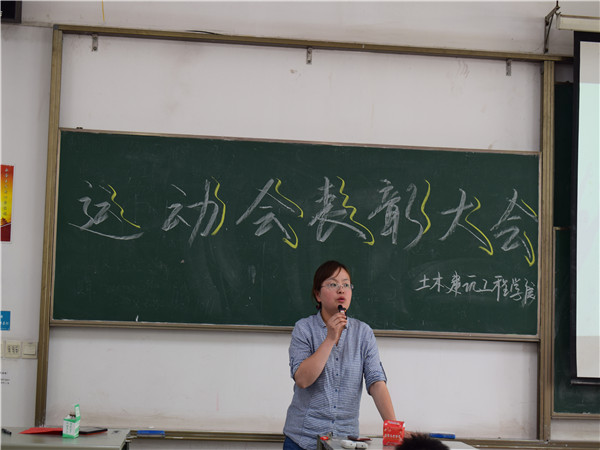 运动会表彰大会
土木建筑工程学院